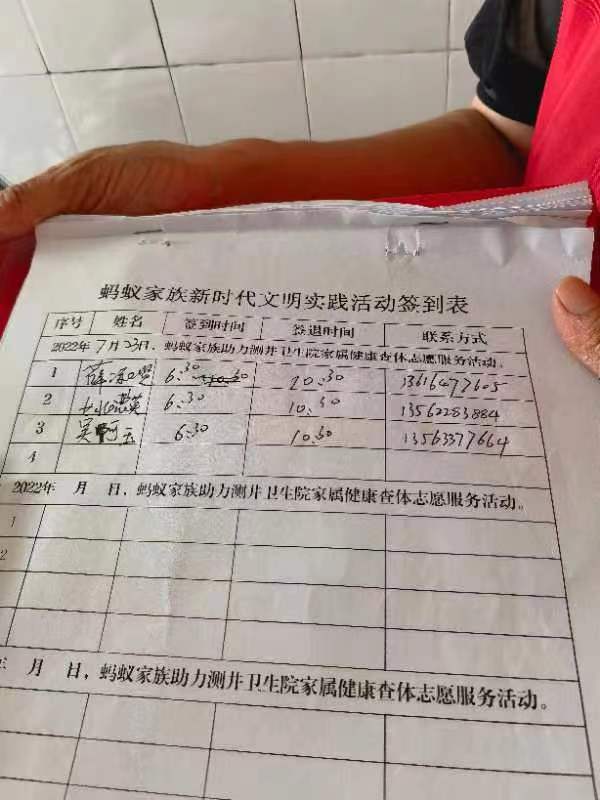 蚂蚁家族新时代文明实践活动签到表
序号 姓名 签到时间 签退时间 联系方式
2022年7月23日，蚂蚁家族助力测井卫生院家属健康查体志愿服务活动。
1 6.30 10.30 13616477605
2 6.30 10.30 13562283884
3 吴 玉 6.30 10.30 13563377664
4
2022年 月 日，蚂蚁家族助力测井卫生院家属健康查体志愿服务活动。
1
2
年 月 日，蚂蚁家族助力测井卫生院家属健康查体志愿服务活动。